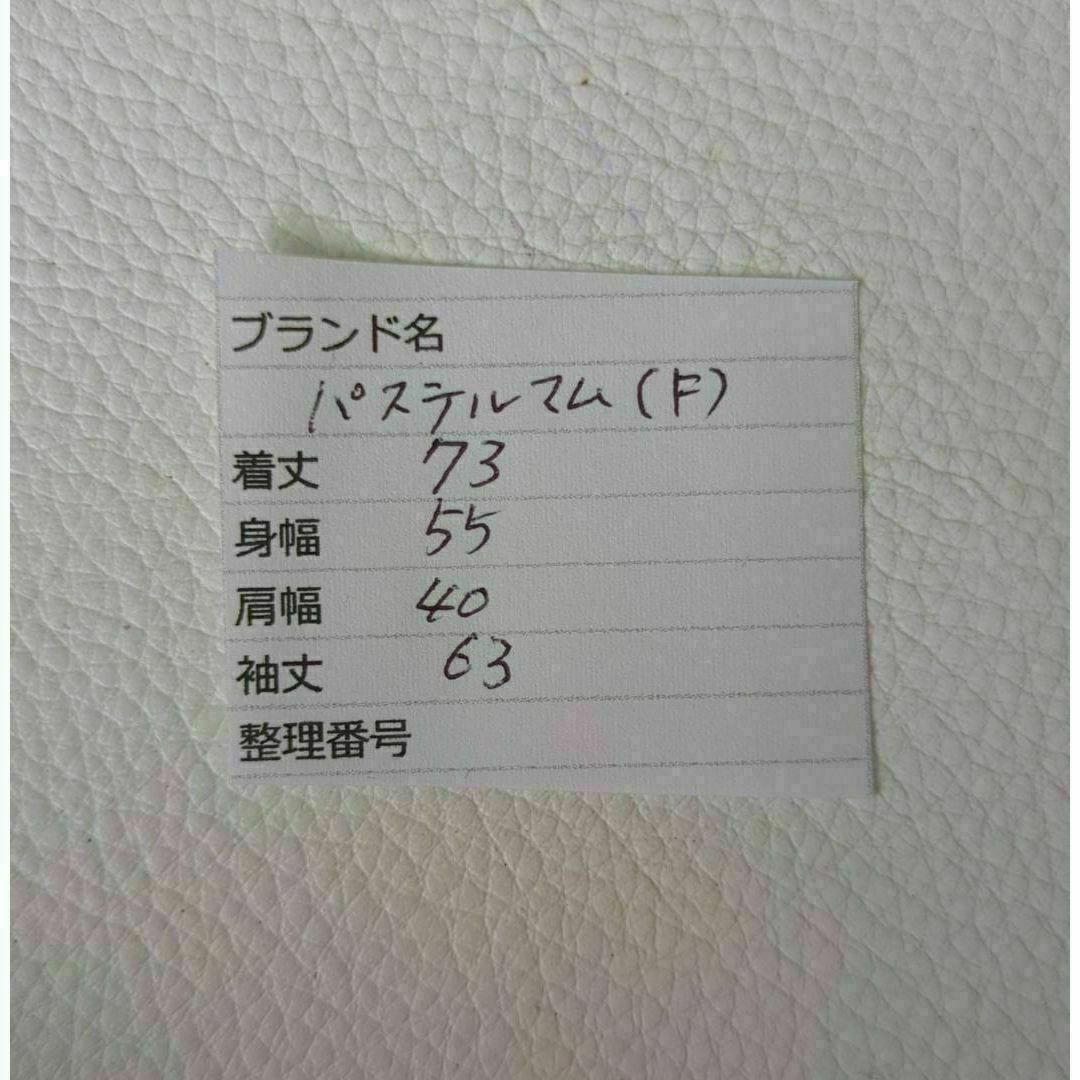 ブランド名
パステルマム(F)
着丈 73
身幅 55
肩幅 40
袖丈 63
整理番号